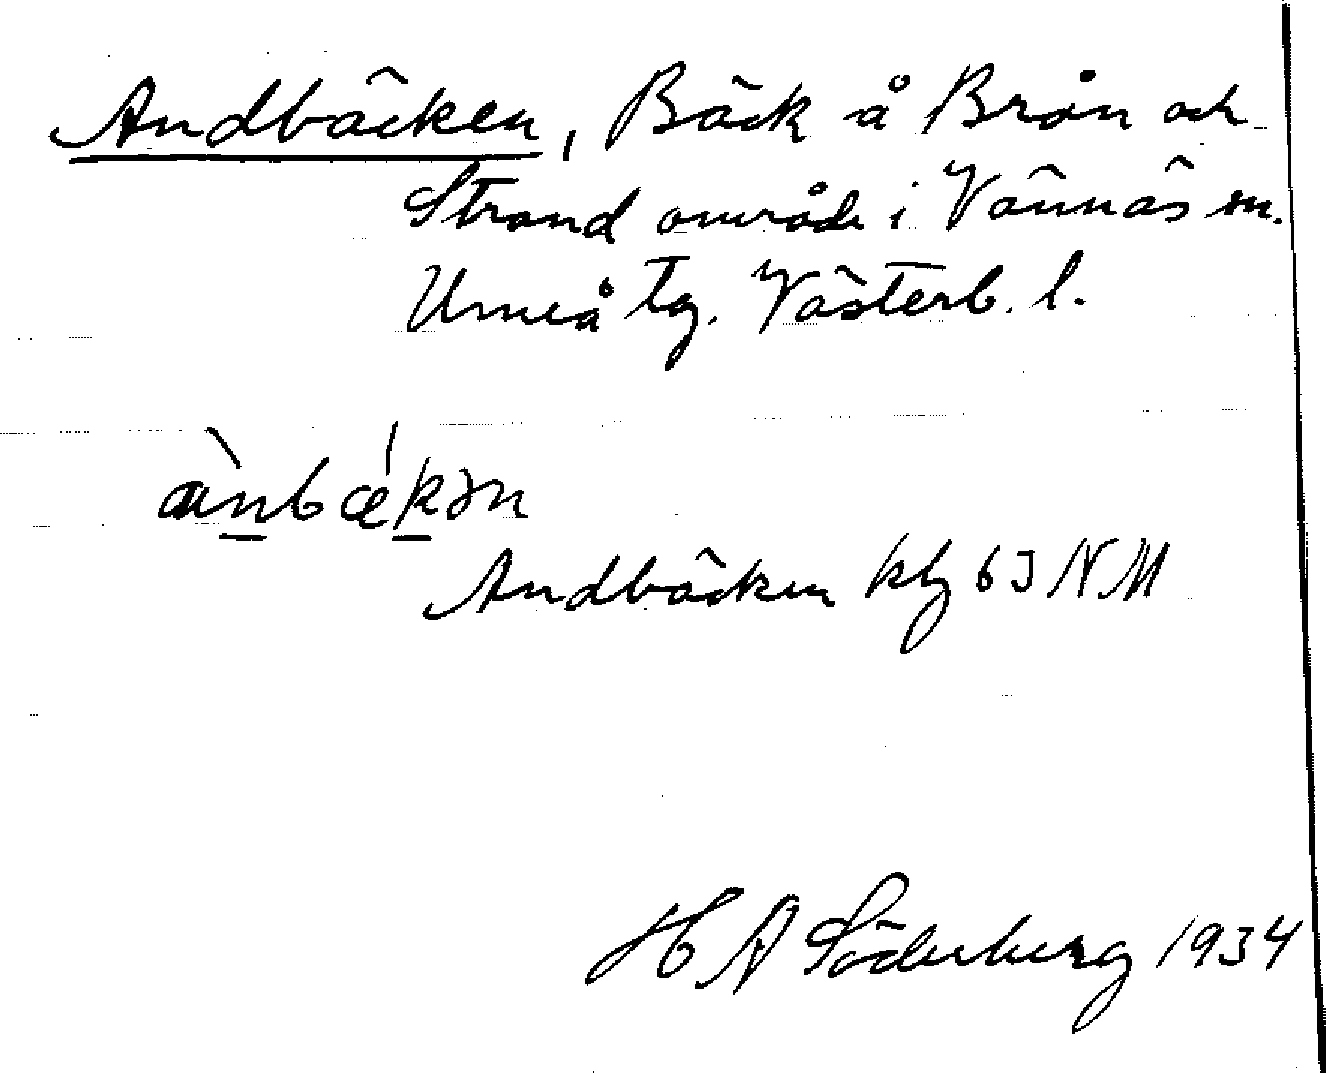 Andbäcken, Bäck å Brån och
Strand område i Vännäs sn.
Umeå tg. Västerb. l.
ànbǽkən
Andbäcken kbl 63 NM
H A Söderberg 1934